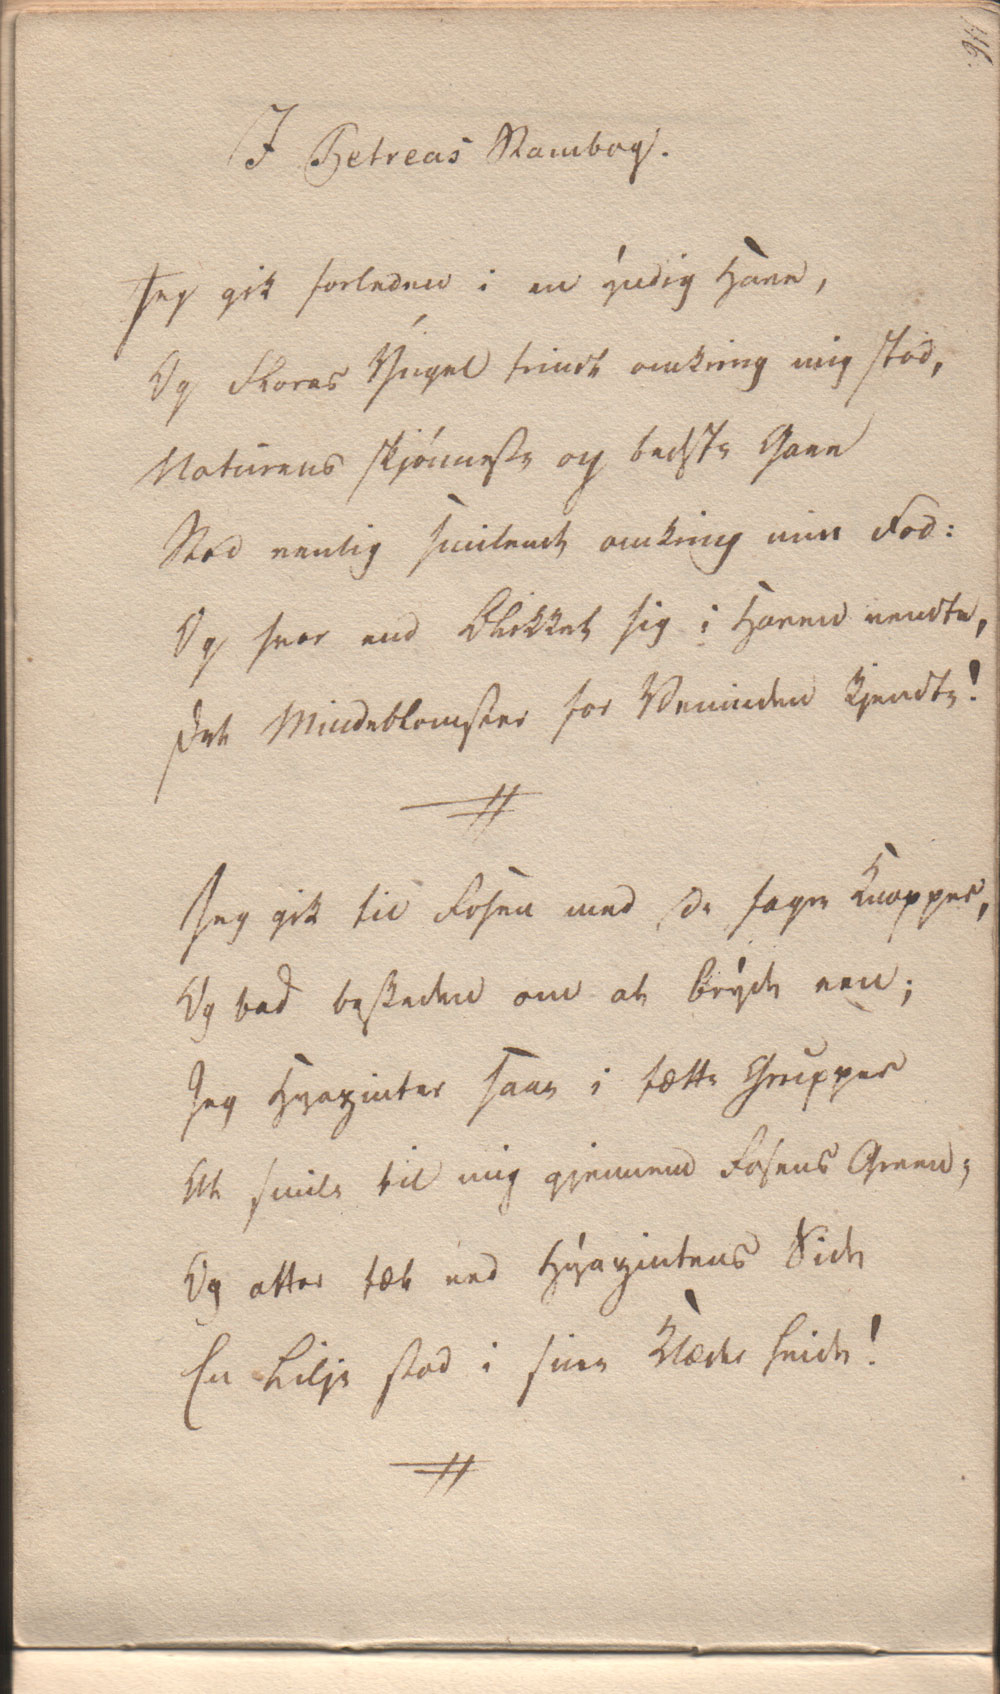 I Petreas Stambog.
Jeg gik forleden i en yndig Have,
Og Floras Yngel trindt omkring mig stod,
Naturens skjönneste og bedste Gave
Stod venlig smilende omkring min Fod:
Og hvor end Blikket sig i Haven vendte,
Det Mindeblomster for Veninden kjendte!
Jeg gik til Rosen med de fagre Knopper,
Og bad beskeden om at bryde een;
Jeg Hyazinter saae i tætte Grupper
At smile til mig gjennem Rosens Green;
Og atter tæt ved Hyazintens Side
En Lilje stod i sine Klæder hvide!